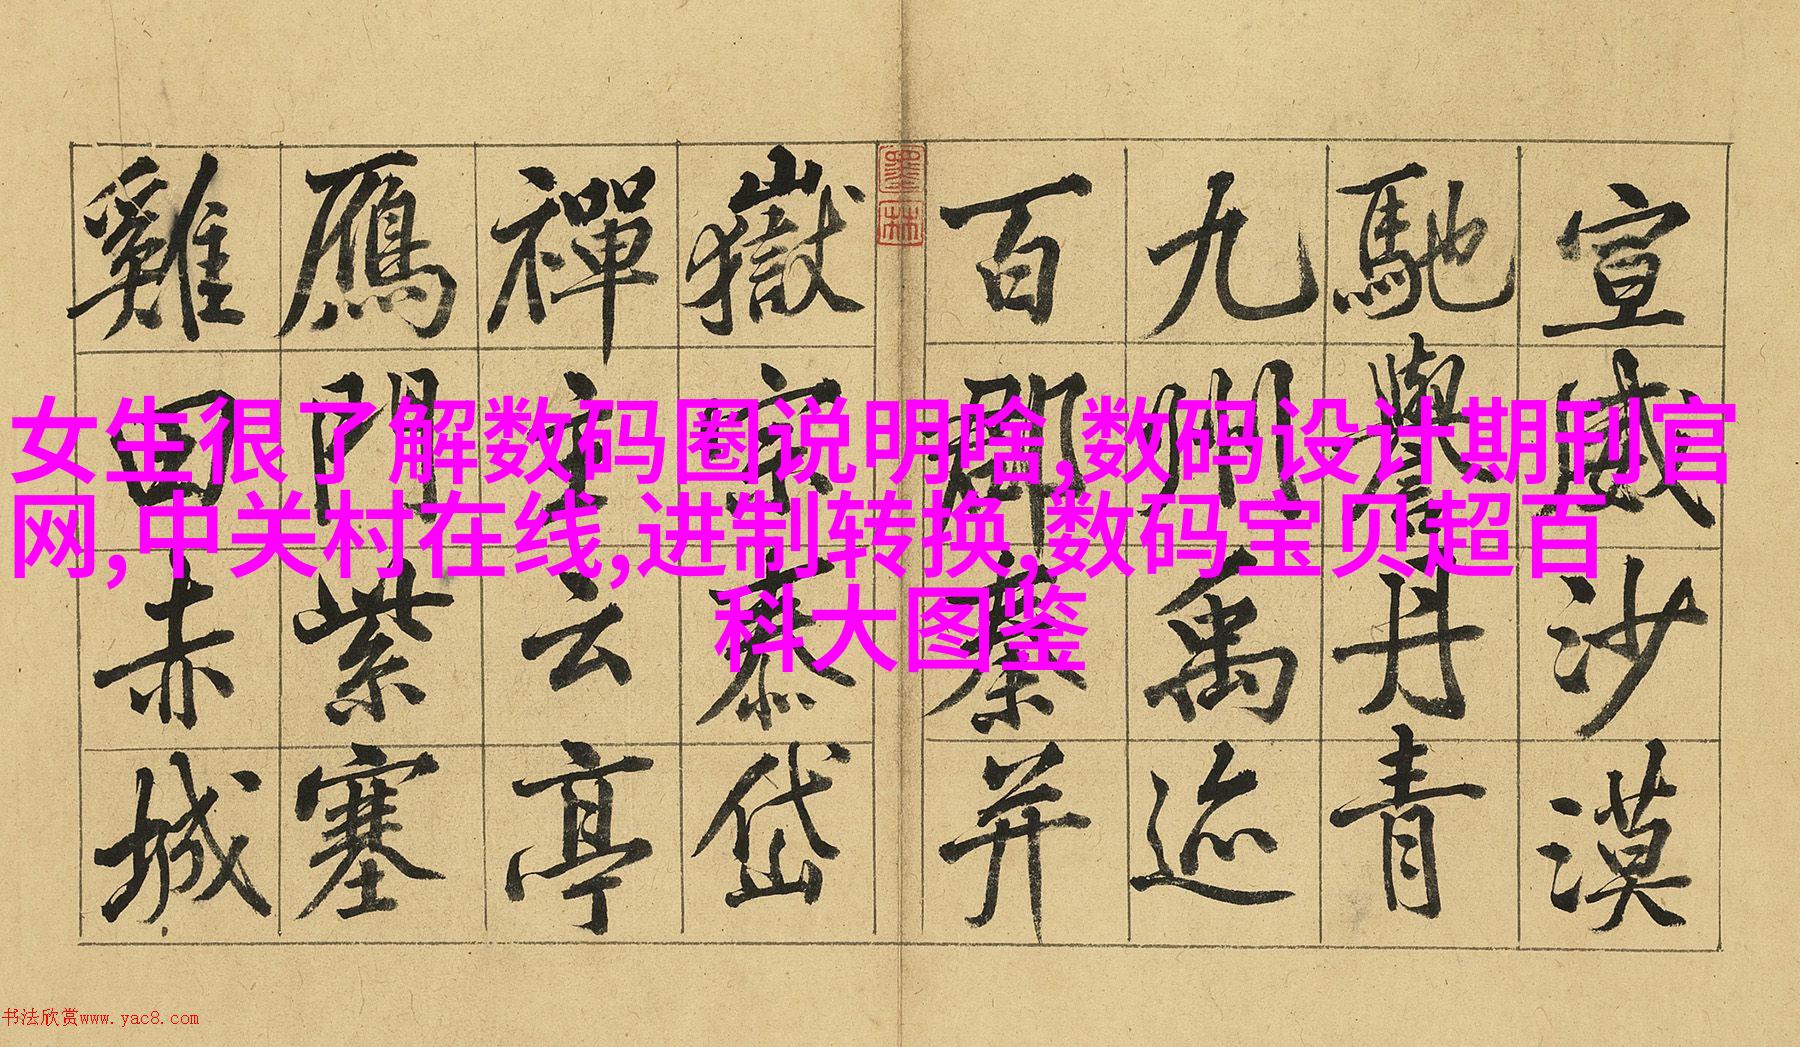 宣威沙漠
馳譽丹青
九州禹迹
百郡秦并
墨林
嶽宗泰岱
禪主云亭
鴈門紫塞
雞田赤城
女生很了解数码圈说明啥,数码设计期刊官
网,中关村在线,进制转换,数码宝贝超百
科大图鉴
书法欣赏www.yac8.com